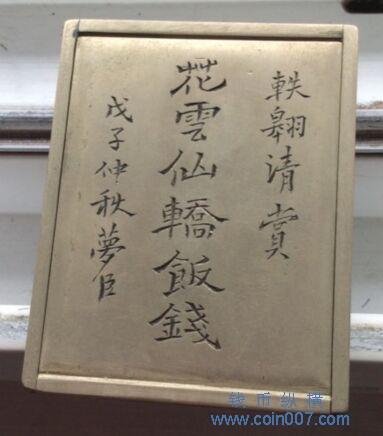 軼翱清賞
花雲仙轎飯錢
戊子仲秋夢臣
钱币纵横
www.coin007.com